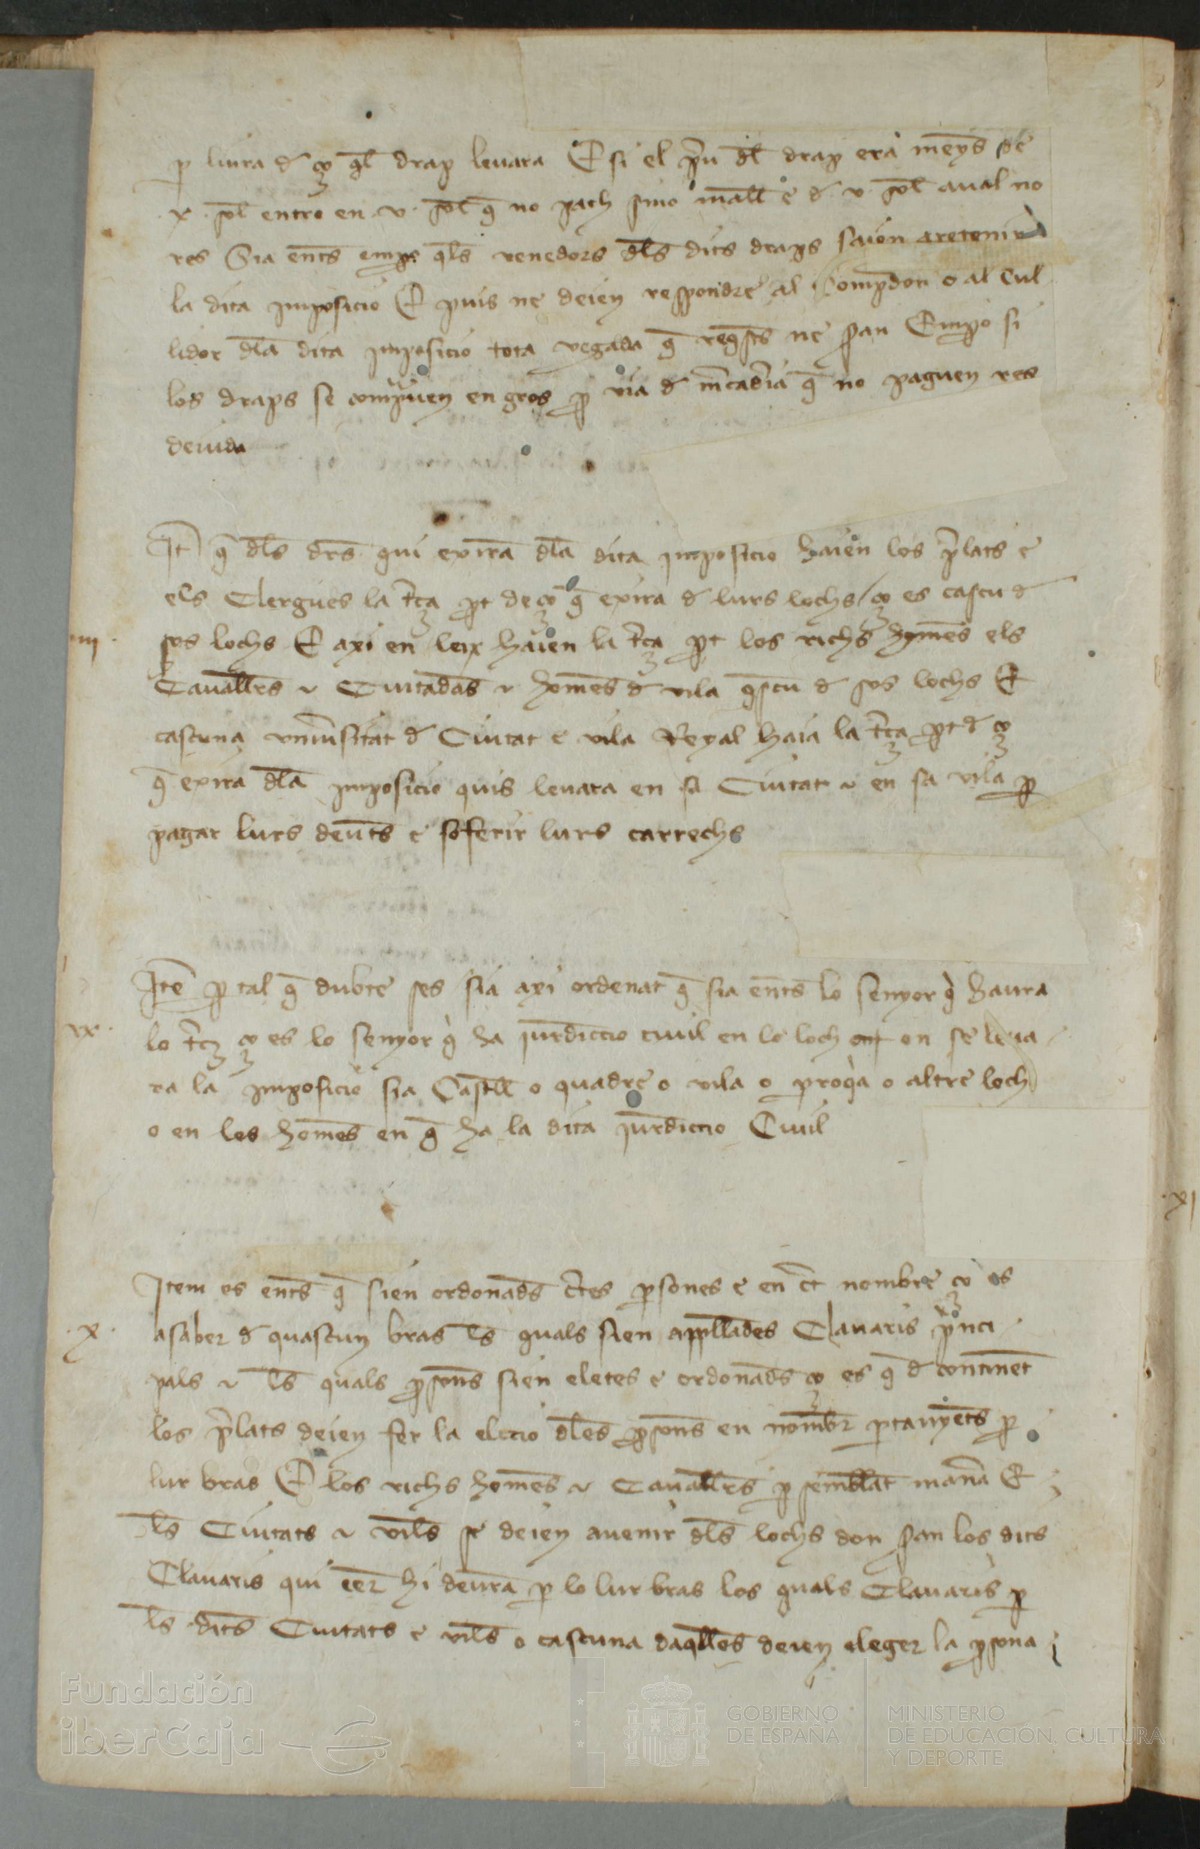 p liura d ço ql drap leuara E si el pu dl drap era meys de
x sol entro en v sol q no pach sino mall e d v sol aual no
res Sia ents emps qls venedors dls dits draps saien a retenir
la dita imposicio E puis ne deien respondre al Compdor o al Cul
lidor dla dita imposicio tota vegada q reqsts ne seran Empo si
los draps se compuen en gros p via d mcaderia q no paguen res
deuida
It q dls drs qui exira dla dita imposicio haien los plats e
els Clergues la tça pt de ço q exira d lurs lochs / ço es cascu d
sos lochs E axi en leix haien la tça pt los richs homes els
Cauallrs e Ciutadas e homes d vila qscu d sos lochs E
cascuna vniusitat d Ciutat e vila Reyal haia la tça pt d ço
q exira dla imposicio quis leuara en sa Ciutat e en sa vila p
pagar lurs deuts e soferir lurs carrechs
Ite p tal q dubte ses sia axi ordenat q sia ents lo senyor q haura
ix
lo tç ço es lo senyor q ha iurdiccio ciuil en lo loch on se leua
ra la imposicio sia Castll o quadre o vila o proqia o altre loch
o en los homes en q ha la dita iurdiccio Ciuil
xi
Item es ents q sien ordonads ctes psones e en ct nombre ço es
x
asaber d quascun bras ls quals sien appllades Clauaris pnci
pals e ls quals psons sien eletes e ordonads ço es q d continet
los plats deien fer la eleccio dles psons en nombr ptanyets p
lur bras E los richs homes e Cauallrs p semblat mana E
ls Ciutats e viles se deien auenir dls lochs don seran los dits
Clauaris qui eer hi deura p lo lur bras los quals Clauaris p
ls dits Ciutats e viles o cascuna daqlles deien eleger la psona
Fundación
iberCaja
GOBIERNO
DE ESPAÑA
MINISTERIO
DE EDUCACIÓN, CULTURA
Y DEPORTE